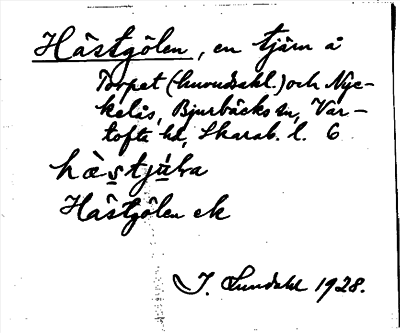 Hästgölen, en tjärn å
Torpet (huvudsakl.) och Nyc-
kelås, Bjurbäcks sn, Var-
tofta hd, Skarab. l. 6
Hästgölen ek
I. Lundahl 1928.